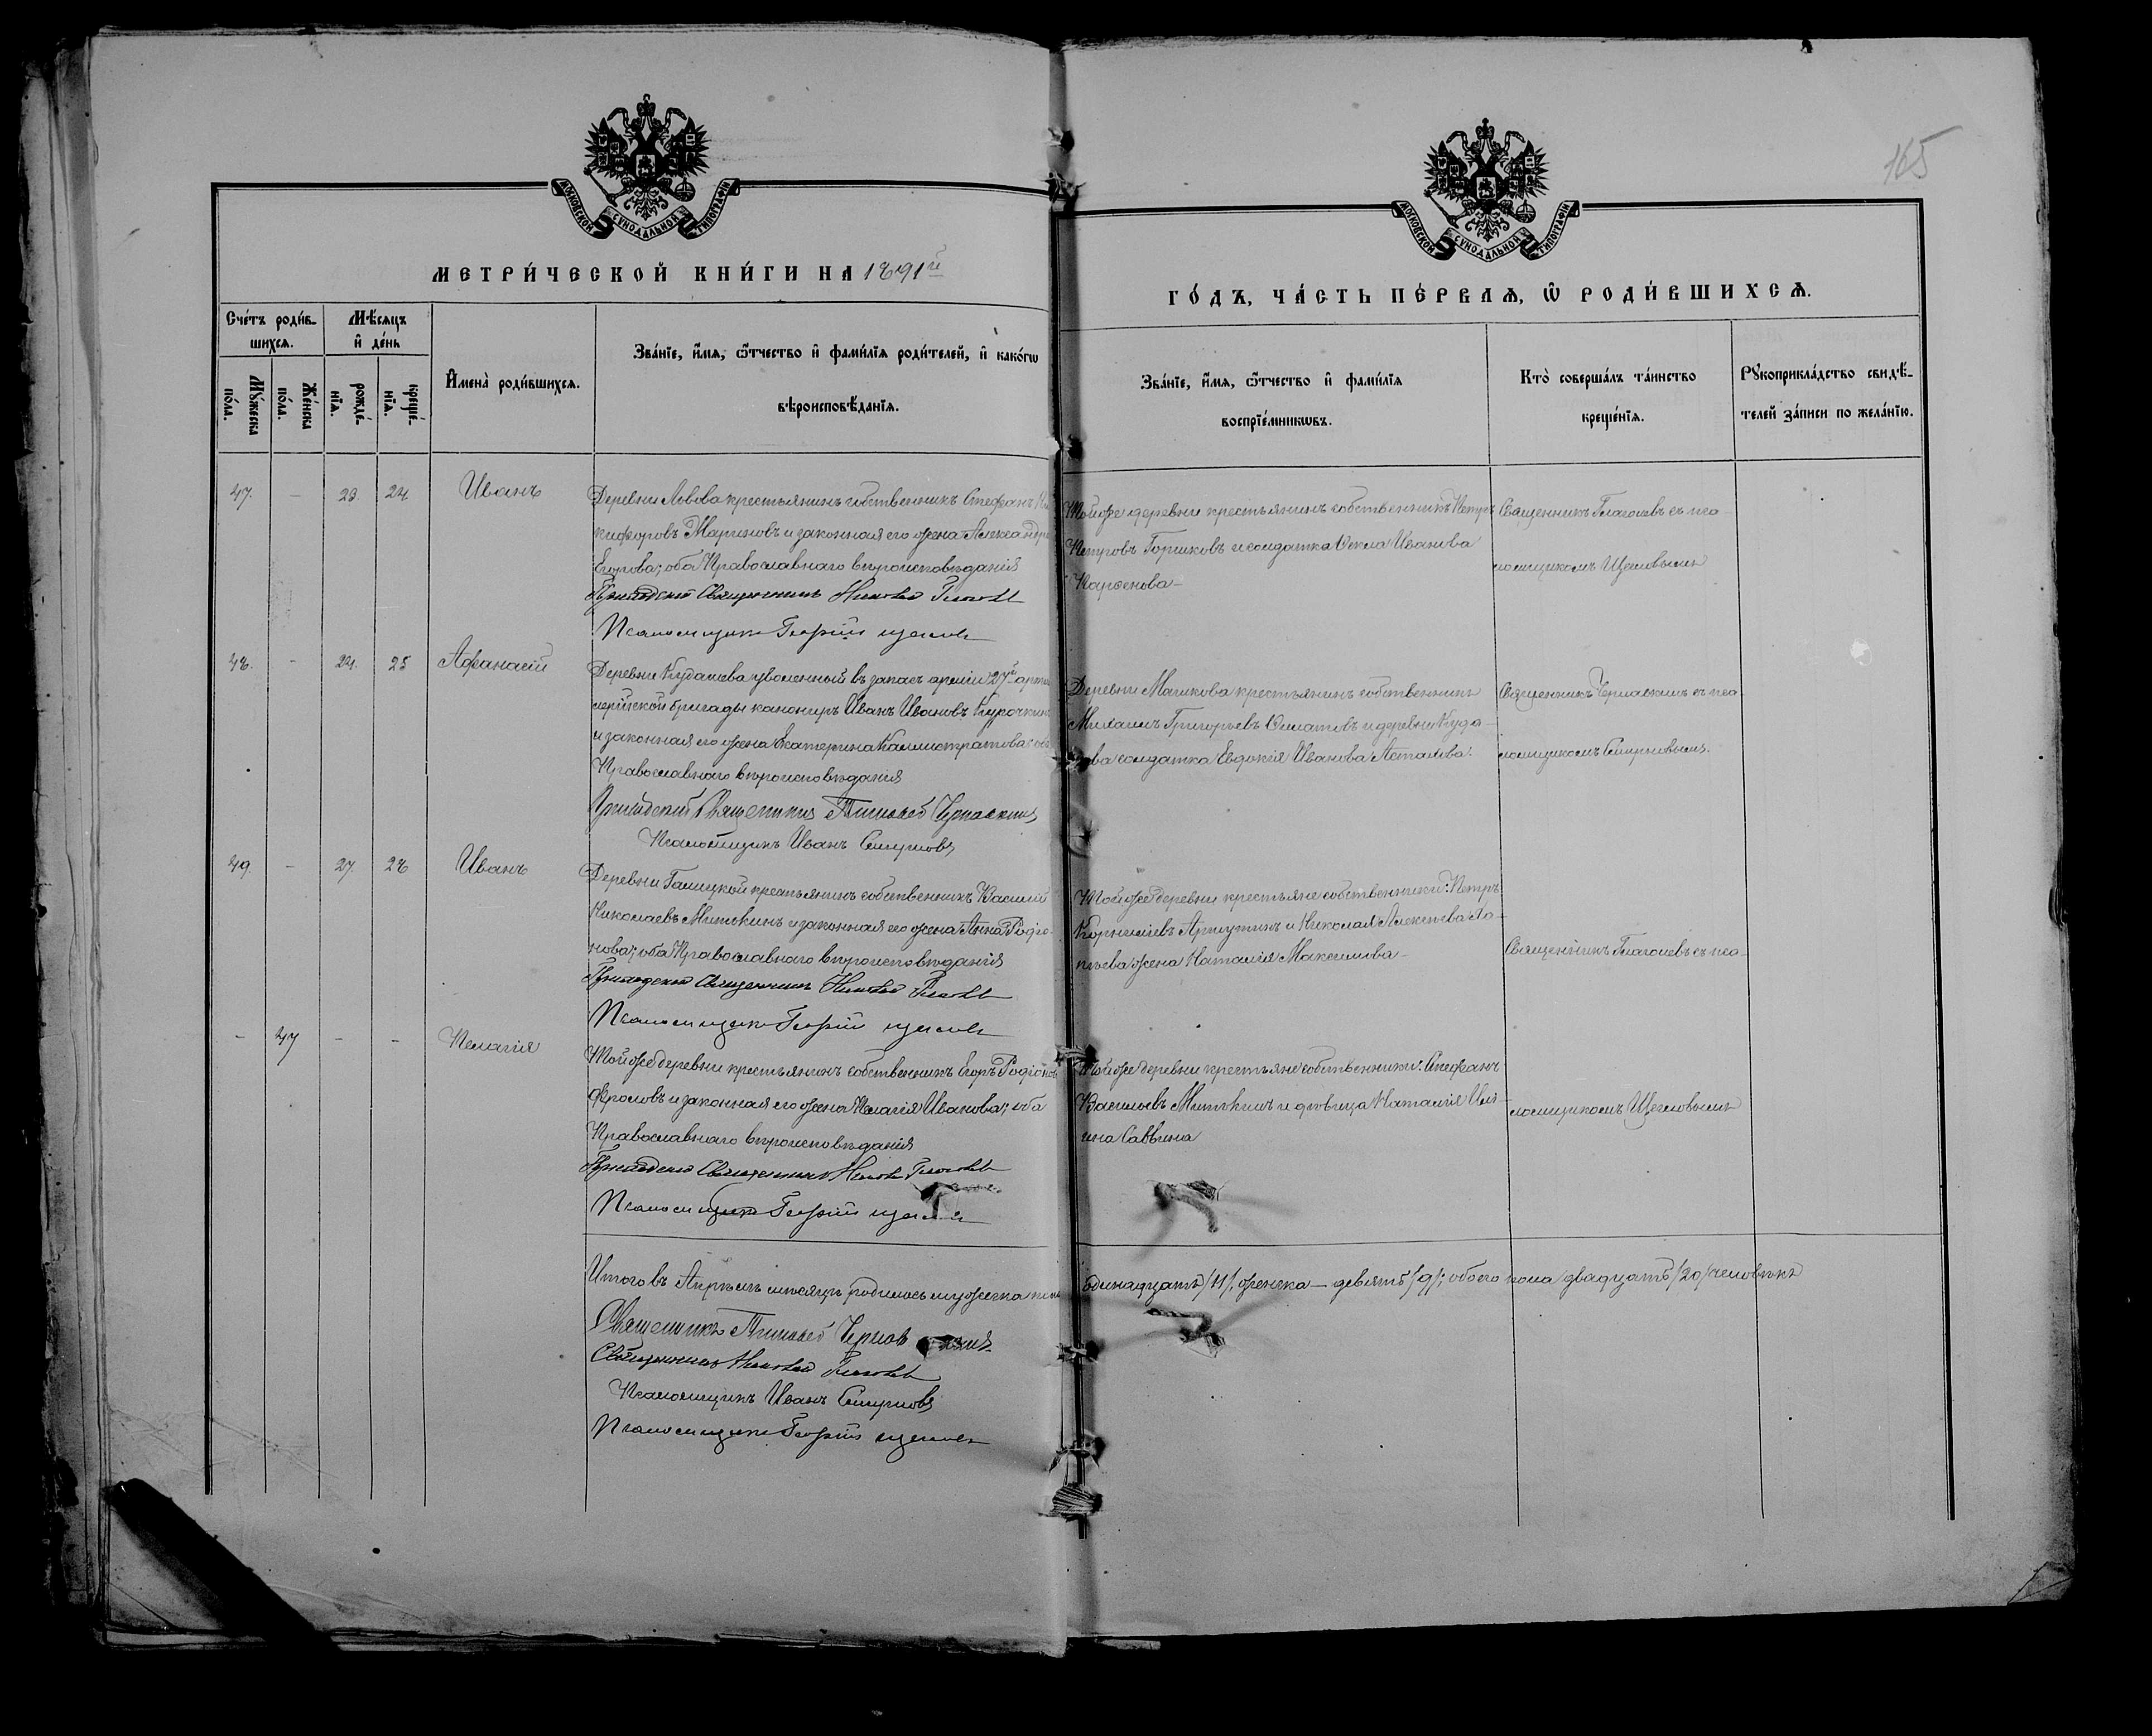 165
МОСКОВСКОЙ СѴНОДАЛЬНОЙ ТИПОГРАФІИ
МОСКОВСКОЙ СѴНОДАЛЬНОЙ ТИПОГРАФІИ
МЕТРИ́ЧЕСКОЙ КНИ́ГИ НА 1891й
ГО́ДЪ, ЧА́СТЬ ПЕ́РВАѦ, Ѡ РОДИ́ВШИХСѦ.
Сче́тъ роди́в-
шихсѧ.
Мѣ́сѧцъ
и де́нь
Мꙋ́жеска
по́ла.
Же́нска
по́ла.
рожде́-
нїѧ.
креще́-
нїѧ.
Имена̀ роди́вшихсѧ.
Зва́нїе, и́мѧ, ѻ́тчество и фами́лїѧ роди́телей, и како́гѡ
вѣроисповѣ́данїѧ.
Зва́нїе, и́мѧ, ѻ́тчество и фами́лїѧ
воспрїе́мникѡвъ.
Кто̀ соверша́лъ та́инство
креще́нїѧ.
Рꙋкоприкла́дство свидѣ́-
телей за́писи по жела́нїю.
47. - 23. 24. Иванъ
Деревни Львова крестьянинъ собственникъ Стефанъ Ни
кифоровъ Мариновъ и законная его жена Александра
Егорова; оба Православнаго вѣроисповѣданія
Приходский Священникъ Николай Глаголевъ
Псаломщикъ Георгій Щегловъ
Той же деревни крестьянинъ собственникъ Петръ
Петровъ Горшковъ и солдатка Ѳекла Иванова
Парѳенова-
Священникъ Глаголевъ съ пса-
ломщикомъ Щегловымъ
48. - 24. 25 Афанасій
Деревни Кудашева уволенный въ запасъ арміи 27й артил
лерійской бригады канониръ Иванъ Ивановъ Курочкинъ
и законная его жена Екатерина Каллистратова; оба
Православнаго вѣроисповѣданія
Приходскій Священникъ Тимофей Чернавкинъ
Псаломщикъ Иванъ Смирновъ
Деревни Машкова крестьянинъ собственникъ
Михаилъ Григорьевъ и деревни Куда-
ва солдатка Евдокія Иванова
Священникъ Чернавкинъ съ пса
ломщикомъ Смирновымъ.
49. - 27. 28 Иванъ
Деревни Галицкой крестьянинъ собственникъ Василій
Николаевъ Митькинъ и законная его жена Анна Родіо-
нова; оба Православнаго вѣроисповѣданія
Приходский Священникъ Николай Глаголевъ
Псаломщикъ Георгій Щегловъ
Той же деревни крестьяне собственники: Петръ
Корниліевъ и Николая Алексѣева Ло-
пѣева жена Наталія Максимова-
Священникъ Глаголевъ съ пса-
- 47 - - Пелагія
Той же деревни крестьянинъ собственникъ Егоръ Родіоновъ
Фроловъ и законная его жена Пелагія Иванова; оба
Православнаго вѣроисповѣданія
Приходский Священникъ Николай Глаголевъ
Псаломщикъ Георгій Щегловъ
Той же деревни крестьяне собственники: Стефанъ
Васильевъ Митькинъ и дѣвица Наталія Иль-
ина Саввина
ломщикомъ Щегловымъ
Итого въ Апрѣлѣ мѣсяцѣ родилось мужеска пола одинадцать /11/, женска - девять /9/; обоего пола двадцать /20/ человѣкъ
Священникъ Тимофей Чернавкинъ
Священникъ Николай Глаголевъ
Псаломщикъ Иванъ Смирновъ
Псаломщикъ Георгій Щегловъ